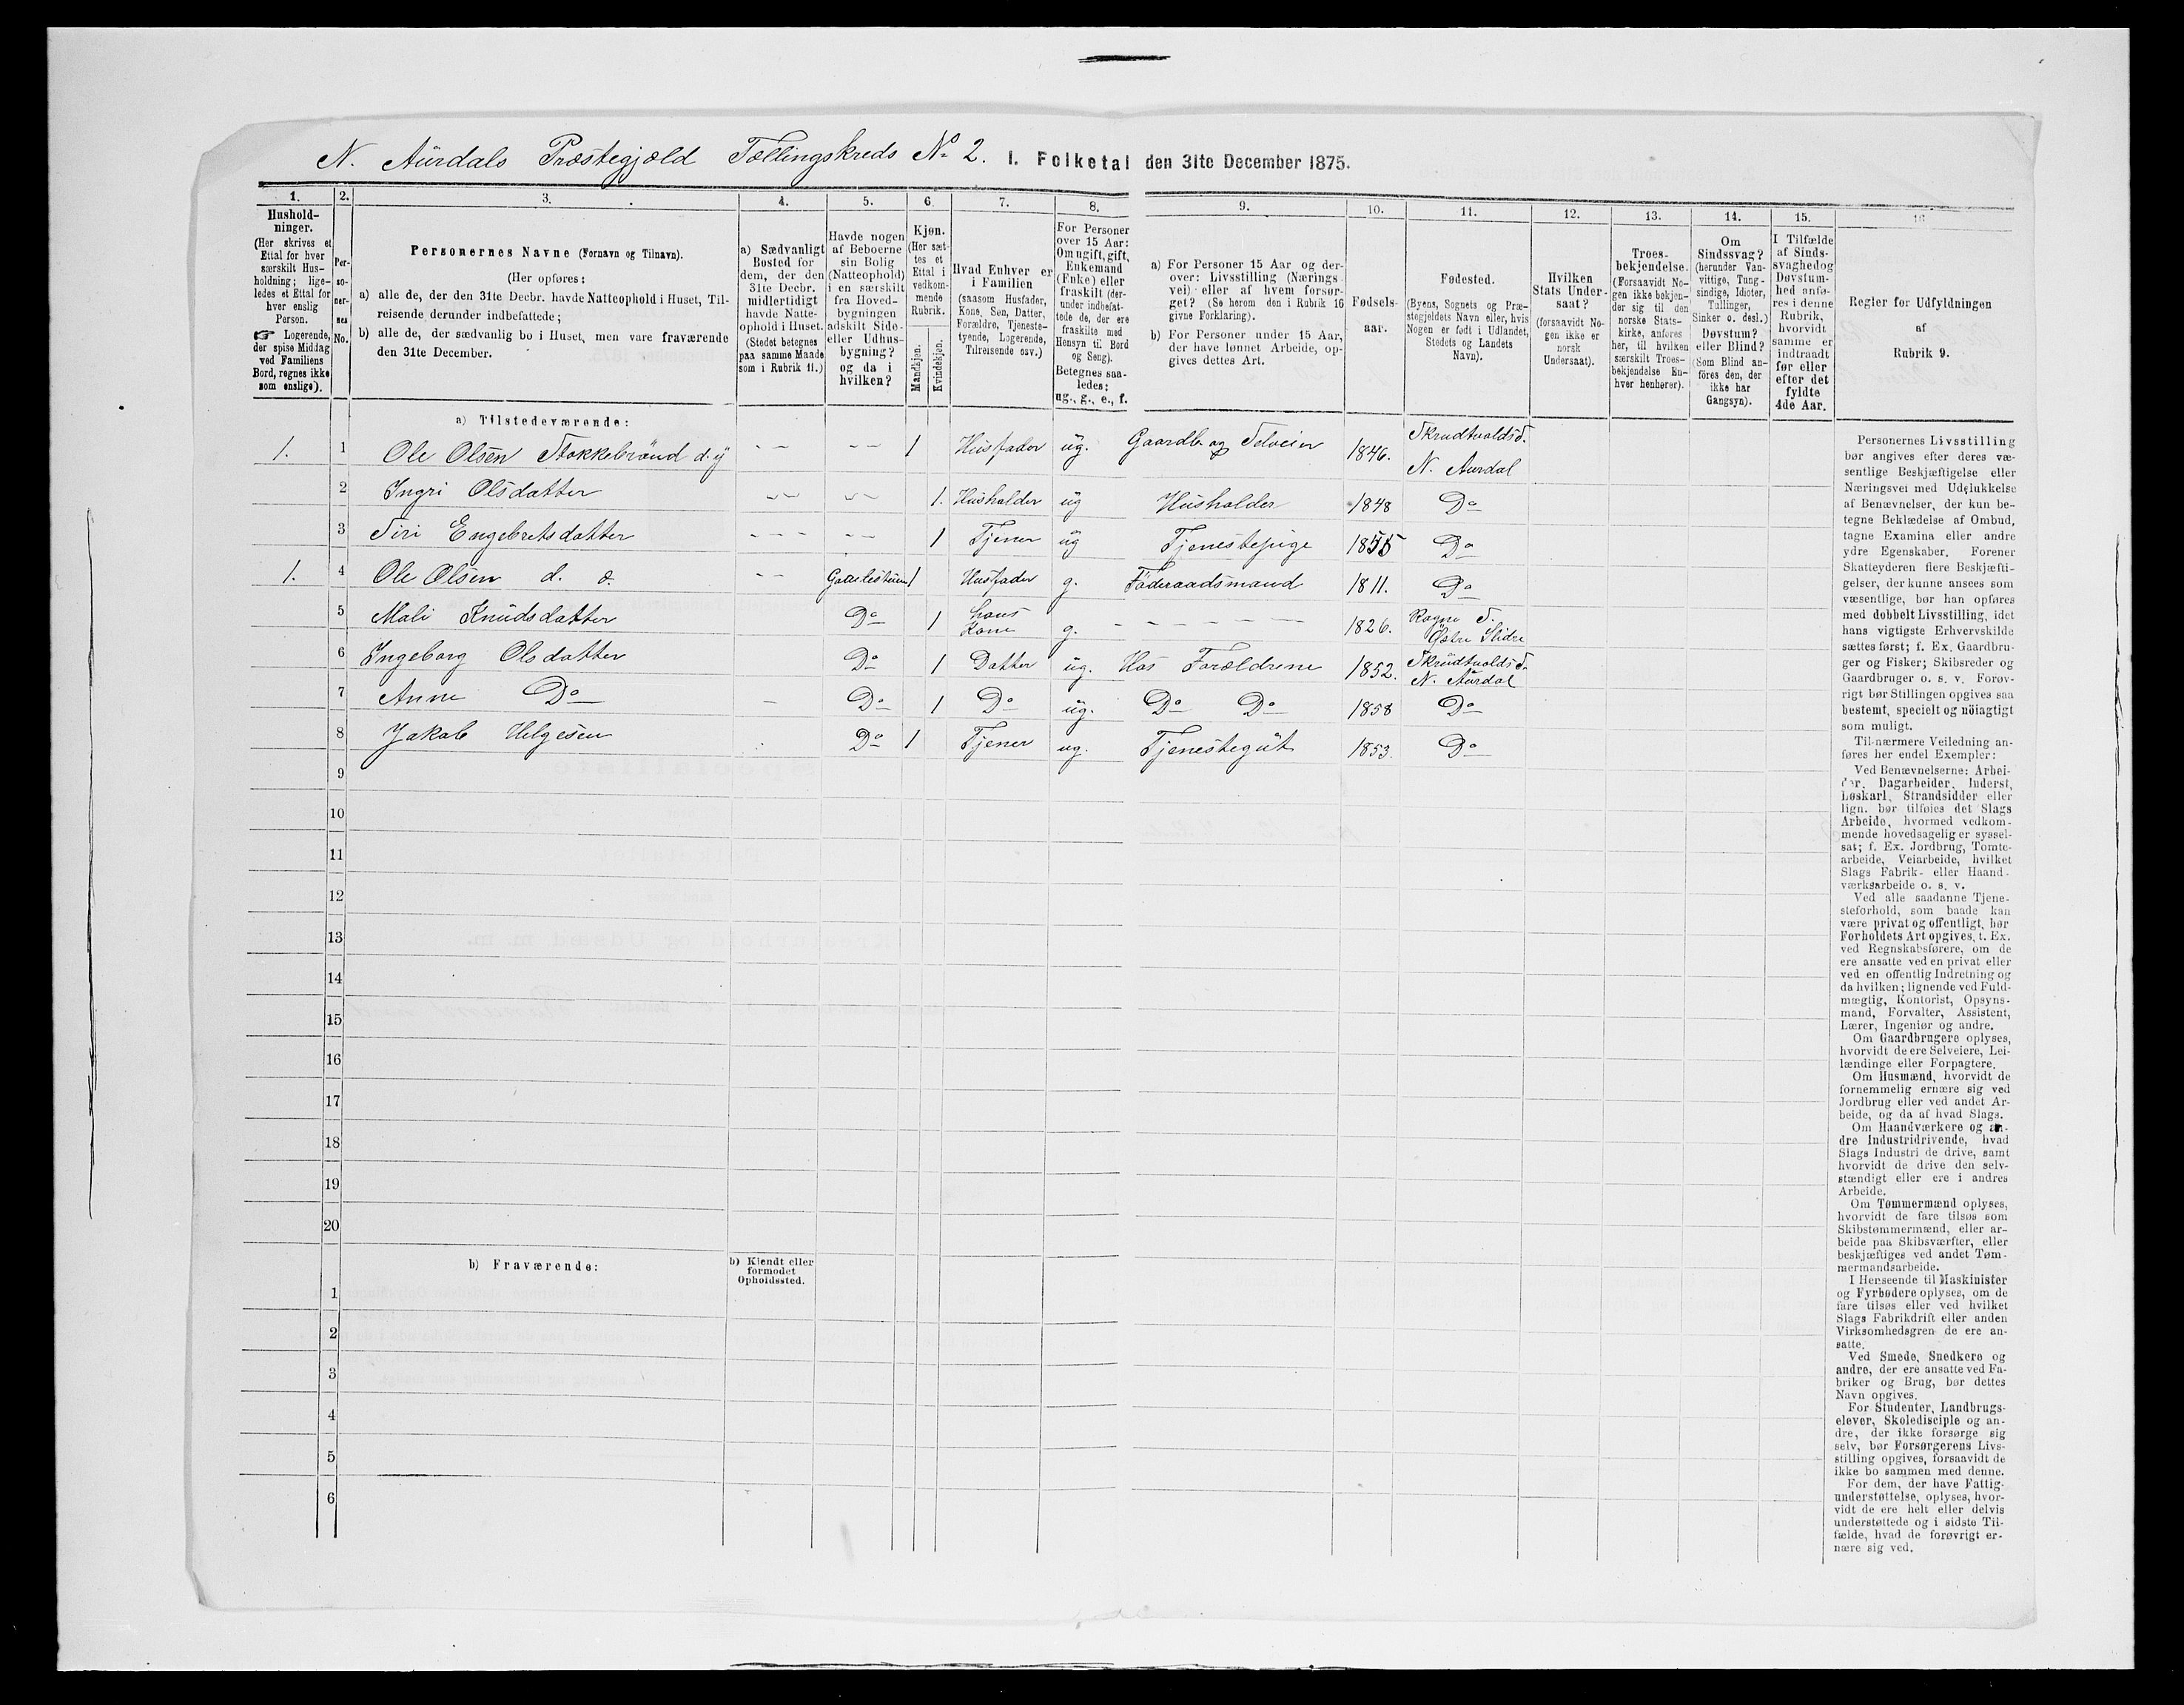 N. Aurdals Præstegjæld Tællingskreds No 2. I. Folketal den 31te December 1875.
1. 2. 3. 4. 5. 6. 7. 8. 9. 10. 11. 12. 13. 14. 15. 16
Hushold-
ninger.
(Her skrives et
Ettal for hver
særskilt Hus-
holdning; lige-
ledes et Ettal for
hver enslig
Person.
☞ Logerende,
der spise Middag
ved Familiens
Bord, regnes ikke
som enslige).
Per-
so-
ner-
nes
No.
Personernes Navne (Fornavn og Tilnavn).
(Her opføres:
a) alle de, der den 31te Decbr. havde Natteophold i Huset, Til-
reisende derunder indbefattede;
b) alle de, der sædvanlig bo i Huset, men vare fraværende
den 31te December.
a) Sædvanligt
Bosted for
dem, der den
31te Decbr.
midlertidigt
havde Natte-
ophold i Huset.
(Stedet betegnes
paa samme Maade
som i Rubrik 11.)
Havde nogen
af Beboerne
sin Bolig
(Natteophold)
i en særskilt
fra Hoved-
bygningen
adskilt Side-
eller Udhus-
bygning?
og da i
hvilken?
Kjøn.
(Her sæt-
tes et
Ettal i
vedkom-
mende
Rubrik.
Mandkjøn.
Kvindekjøn.
Hvad Enhver er
i Familien
(saasom Husfader,
Kone, Søn, Datter,
Forældre, Tjeneste-
tyende, Logerende,
Tilreisende osv.)
For Personer
over 15 Aar:
Om ugift, gift,
Enkemand
(Enke) eller
fraskilt (der-
under indbefat-
tede de, der ere
fraskilte med
Hensyn til Bord
og Seng).
Betegnes saa-
ledes:
ug., g., e., f.
a) For Personer 15 Aar og der-
over: Livsstilling (Nærings-
vei) eller af hvem forsør-
get? (Se herom den i Rubrik 16
givne Forklaring).
b) For Personer under 15 Aar,
der have lønnet Arbeide, op-
gives dettes Art.
Fødsels-
aar.
Fødested.
(Byens, Sognets og Præ-
stegjeldets Navn eller, hvis
Nogen er født i Udlandet,
Stedets og Landets
Navn).
Hvilken
Stats Under-
saat?
(forsaavidt No-
gen ikke er
norsk
Undersaat).
Troes-
bekjendelse.
(Forsaavidt No-
gen ikke bekjen-
der sig til den
norske Stats-
kirke, anføres
her, til hvilken
særskilt Troes-
bekjendelse En-
hver henhører).
Om
Sindssvag?
(herunder Van-
vittige, Tung-
sindige, Idioter,
Tullinger,
Sinker o. desl.)
Døvstum?
eller Blind?
(Som Blind an-
føres den, der
ikke har
Gangsyn).
I Tilfælde
af Sinds-
svaghed og
Døvstum-
hed anfø-
res i denne
Rubrik,
hvorvidt
samme er
indtraadt
før eller
efter det
fyldte
4de Aar.
Regler for Udfyldningen
af
Rubrik 9.
a) Tilstedeværende:
1. 1 Ole Olsen Stokkebrænd d. y - - - - 1 Husfader ug. Gaardb. og Selveier 1846. Skrudtvolds S. N. Aurdal
2 Ingri Olsdatter - - - - 1. Husholder ug Husholder 1848 Do
3 Siri Engebretsdatter - - - - - 1 Tjener ug Tjenestepige 1855 Do
1. 4 Ole Olsen d. æ. - - 1 Husfader g. Føderaadsmand 1811. Do
5 Mali Knudsdatter Do 1 hans Kone g. - - - - - - 1826. Rogne S. Østre Slidre
6 Ingeborg Olsdatter Do 1 Datter ug. Hos Forældrene 1852. Skrudtvolds S. N. Aurdal
7 Anne Do - Do 1 Do ug. Do Do 1858 Do
8 Jakob Helgesen Do 1 Tjener ug. Tjenestegut 1853. Do
9
10
11
12
13
14
15
16
17
18
19
20
b) Fraværende:
b) Kjendt eller
formodet
Opholdssted.
1
2
3
4
5
6
Personernes Livsstilling
bør angives efter deres væ-
sentlige Beskjæftigelse eller
Næringsvei med Udelukkelse
af Benævnelser, der kun be-
tegne Beklædelse af Ombud,
tagne Examina eller andre
ydre Egenskaber. Forener
Skatteyderen flere Beskjæfti-
gelser, der kunne ansees som
væsentlige, bør han opføres
med dobbelt Livsstilling, idet
hans vigtigste Erhvervskilde
sættes først; f. Ex. Gaardbru-
ger og Fisker; Skibsreder og
Gaardbruger o. s. v. Forøv-
rigt bør Stillingen opgives saa
bestemt, specielt og nöiagtigt
som muligt.
Til nærmere Veiledning an-
føres her endel Exempler:
Ved Benævnelserne: Arbei-
der, Dagarbeider, Inderst,
Løskarl, Strandsidder eller
lign. bør tilføies det Slags
Arbeide, hvormed vedkom-
mende hovedsagelig er syssel-
sat; f. Ex. Jordbrug, Tomte-
arbeide, Veiarbeide, hvilket
Slags Fabrik- eller Haand-
værksarbeide o. s. v.
Ved alle saadanne Tjene-
steforhold, som baade kan
være privat og offentligt, bør
Forholdets Art opgives, t. Ex.
ved Regnskabsførere, om de
ere ansatte ved en privat eller
ved en offentlig Indretning og
da hvilken; lignende ved Fuld-
mægtig, Kontorist, Opsyns-
mand, Forvalter, Assistent,
Lærer, Ingeniør og andre.
Om Gaardbrugere oplyses,
hvorvidt de ere Selveiere, Lei-
lændinge eller Forpagtere.
Om Husmænd, hvorvidt de
fornemmelig ernære sig ved
Jordbrug eller ved andet Ar-
beide, og da af hvad Slags.
Om Haandværkere og an-
dre Industridrivende, hvad
Slags Industri de drive, samt
hvorvidt de drive den selv-
stændigt eller ere i andres
Arbeide.
Om Tømmermænd oplyses,
hvorvidt de fare tilsøs som
Skibstømmermænd, eller ar-
beide paa Skibsværfter, eller
beskjæftiges ved andet Tøm-
mermandsarbeide.
I Henseende til Maskinister
og Fyrbødere oplyses, om de
fare tilsøs eller ved hvilket
Slags Fabrikdrift eller anden
Virksomhedsgren de ere an-
satte.
Ved Smede, Snedkere og
andre, der ere ansatte ved Fa-
briker og Brug, bør dettes
Navn opgives.
For Studenter, Landbrugs-
elever, Skoledisciple og an-
dre, der ikke forsørge sig
selv, bør Forsørgerens Livs-
stilling opgives, forsaavidt de
ikke bo sammen med denne.
For dem, der have Fattig-
understøttelse, oplyses, hvor-
vidt de ere helt eller delvis
understøttede og i sidste Til-
fælde, hvad de forøvrigt er-
nære sig ved.